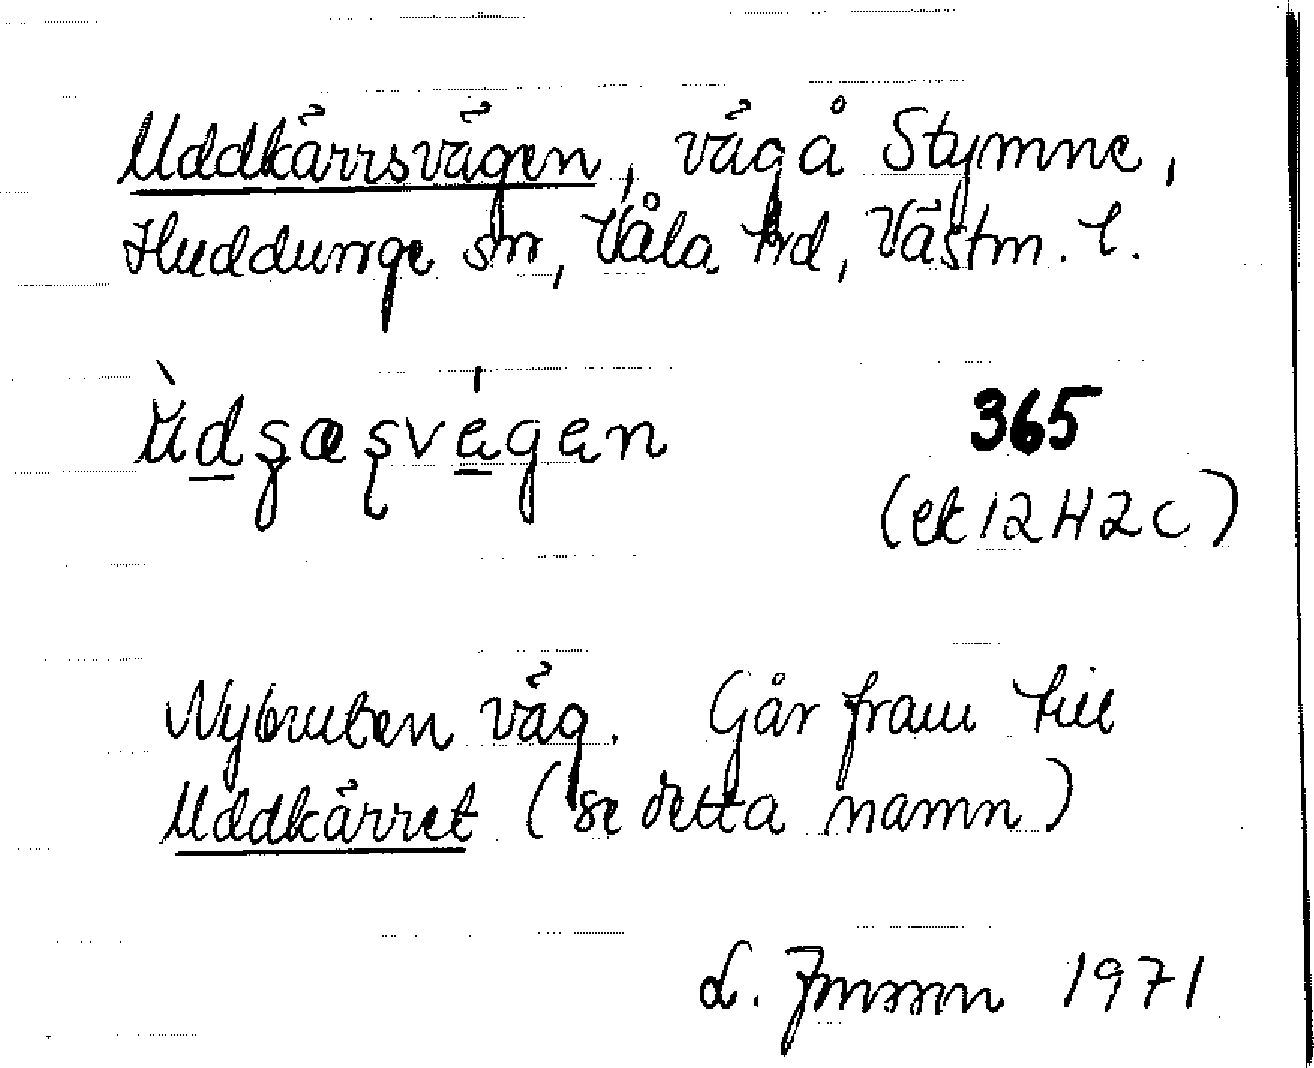 Uddkärrsvägen, väg å Stymne,
Huddunge sn, Våla hd, Västm. l.
365
(ek 12 H 2 c)
Nybruten väg. Går fram till
Uddkärret (se detta namn)
L. 1971